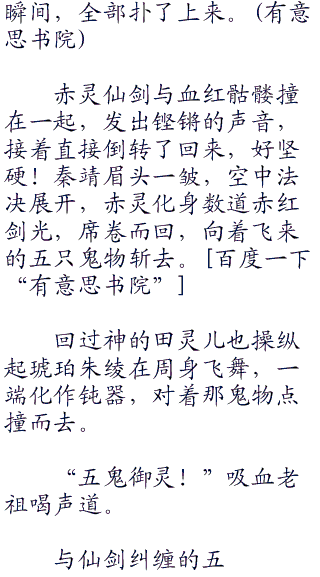 瞬间，全部扑了上来。(有意
思书院)
赤灵仙剑与血红骷髅撞
在一起，发出铿锵的声音，
接着直接倒转了回来，好坚
硬！秦靖眉头一皱，空中法
决展开，赤灵化身数道赤红
剑光，席卷而回，向着飞来
的五只鬼物斩去。[百度一下
“有意思书院”]
回过神的田灵儿也操纵
起琥珀朱绫在周身飞舞，一
端化作钝器，对着那鬼物点
撞而去。
“五鬼御灵！”吸血老
祖喝声道。
与仙剑纠缠的五